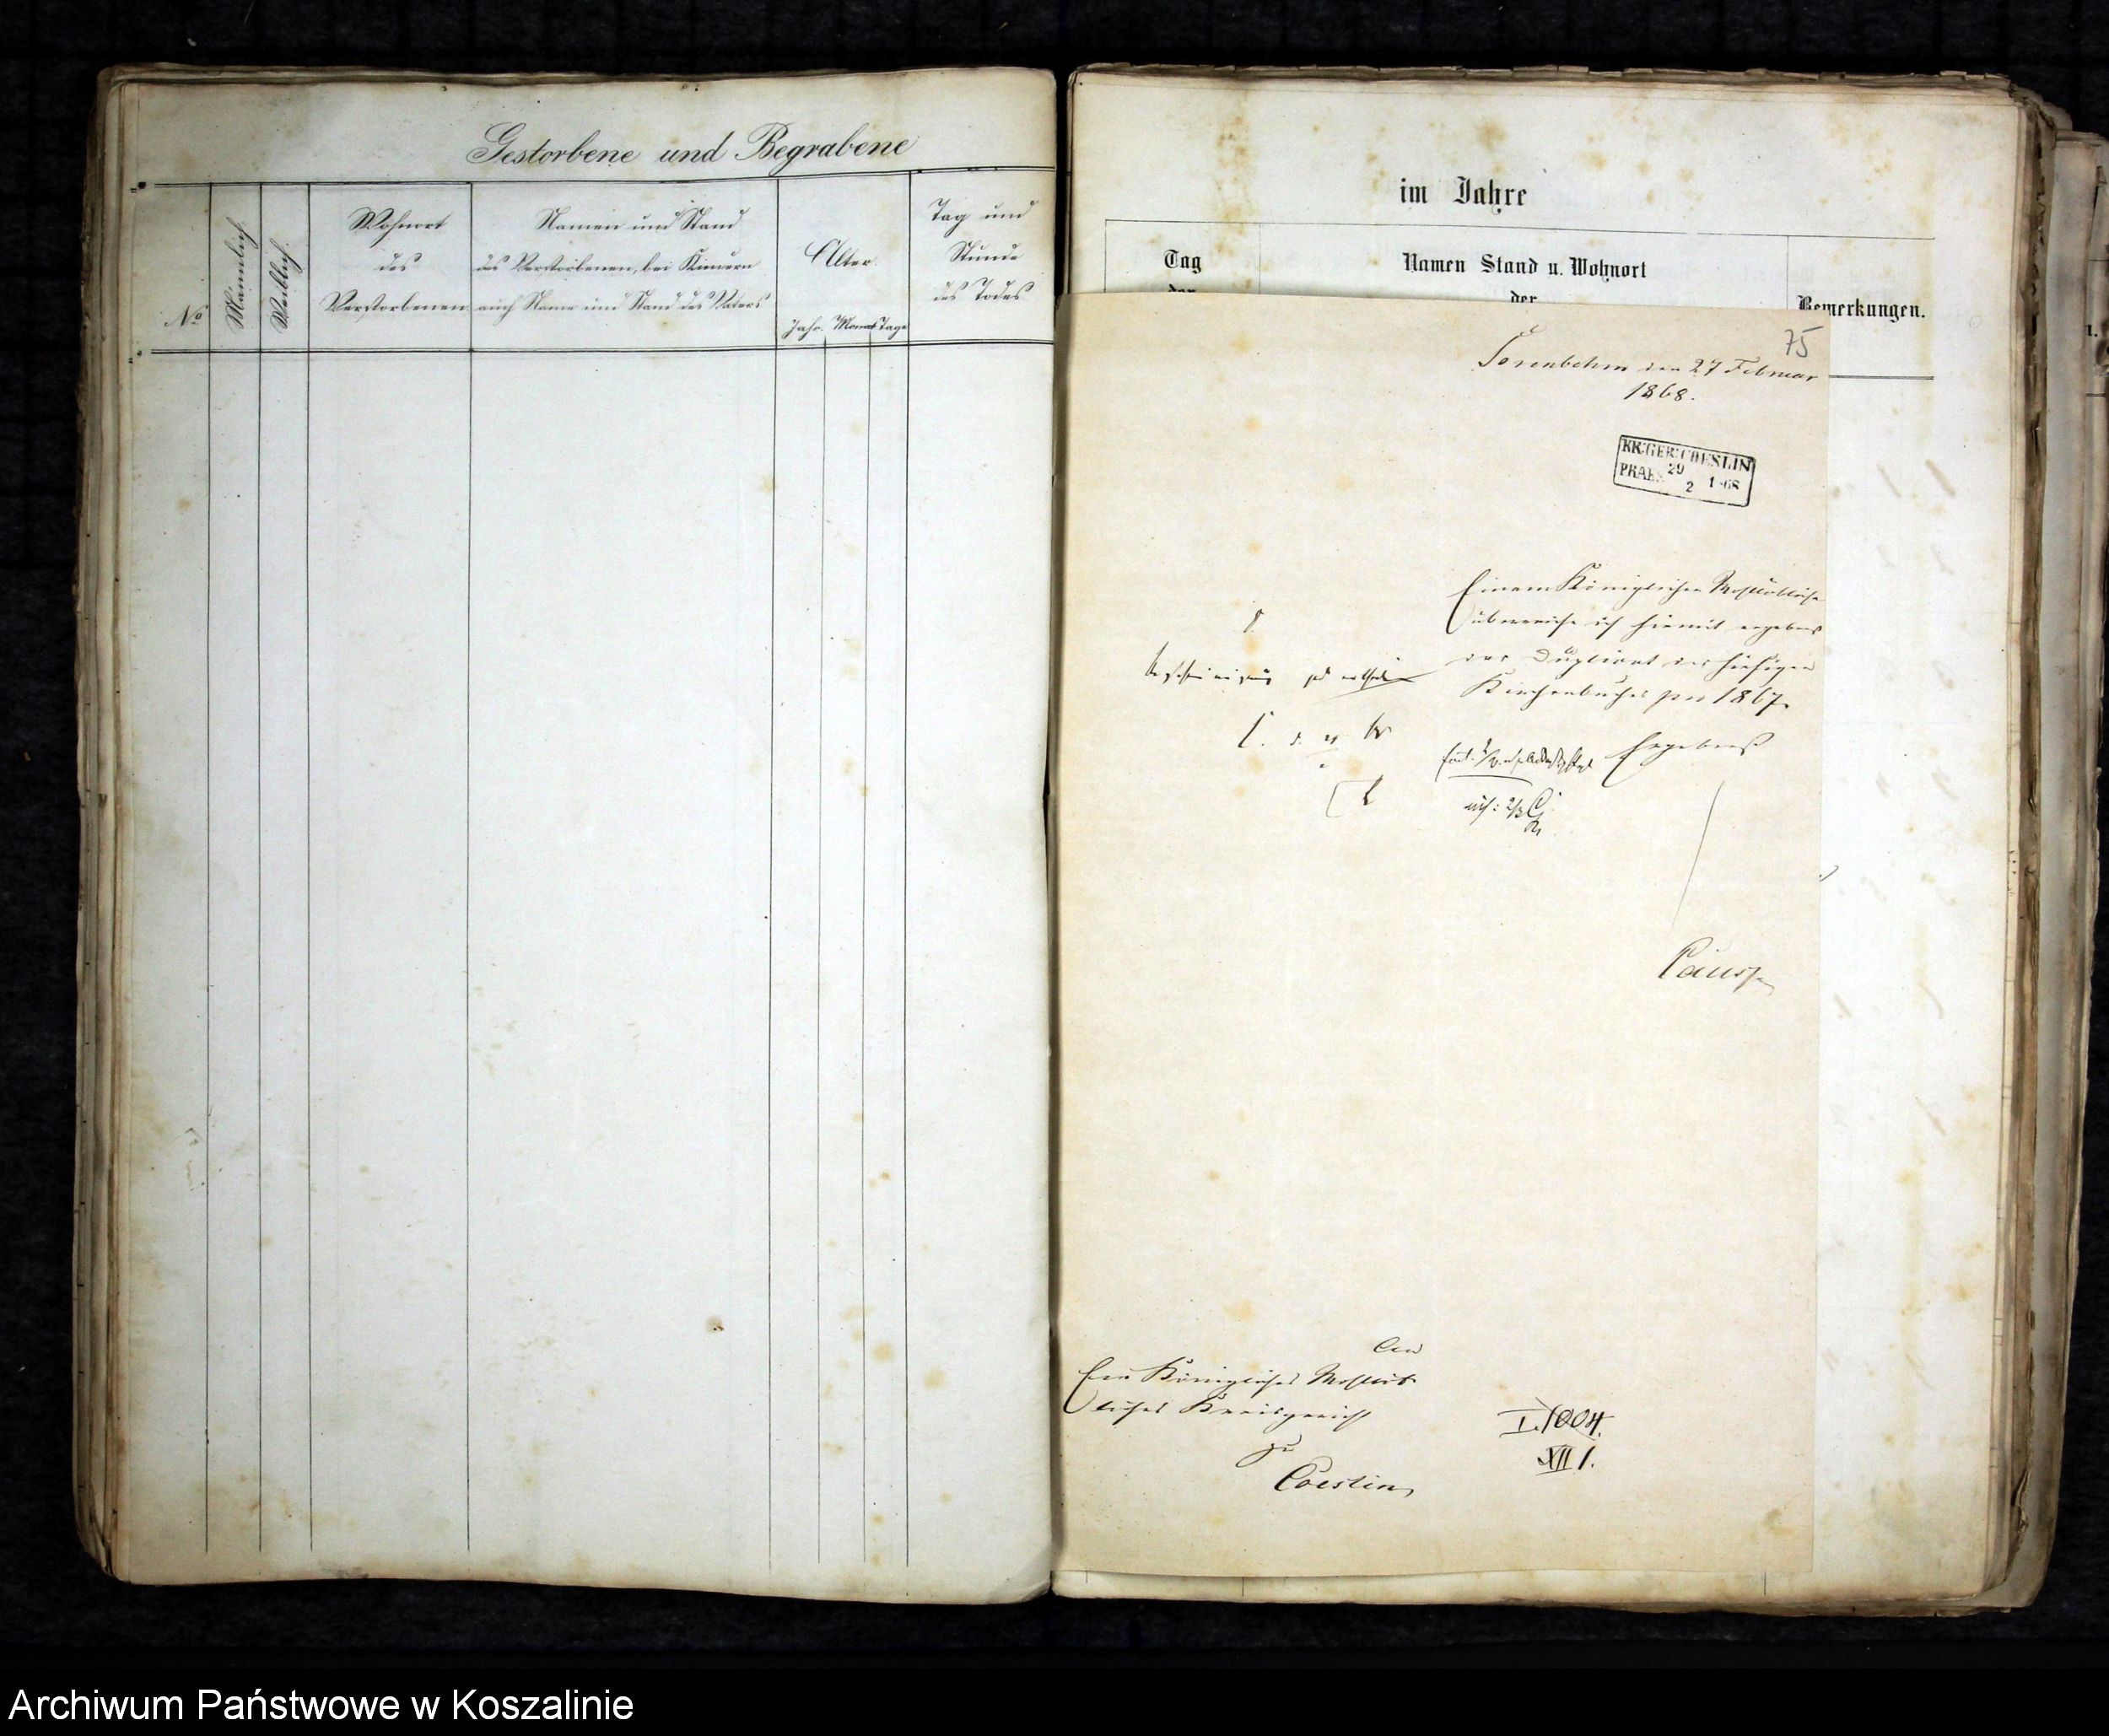 Gestorbene und Begrabene
No
Männlich.
Weiblich.
Wohnort
des
Verstorbenen
Namen und Stand
des Verstorbenen, bei Kindern
auch Name und Stand des Vaters
Alter.
Jahr. Monat Tage
Tag und
Stunde
des Todes
im Jahre
Tag
der
Namen Stand u. Wohnort
der
Bemerkungen.
75
Sorenbohm den 27 Februar
1868.
KR:GER:COESLIN
PRAES. 29 2 1868
Einem Königlichen Wohllöblichen
überreiche ich hiermit ergebenst
das Duplicat des hiesigen
Kirchenbuches pro 1867.
Ergebenst
An
Ein Königliches Wohllöb
liches Kreisgericht
zu
Coeslin
I. 1004.
XII 1.
Archiwum Państwowe w Koszalinie